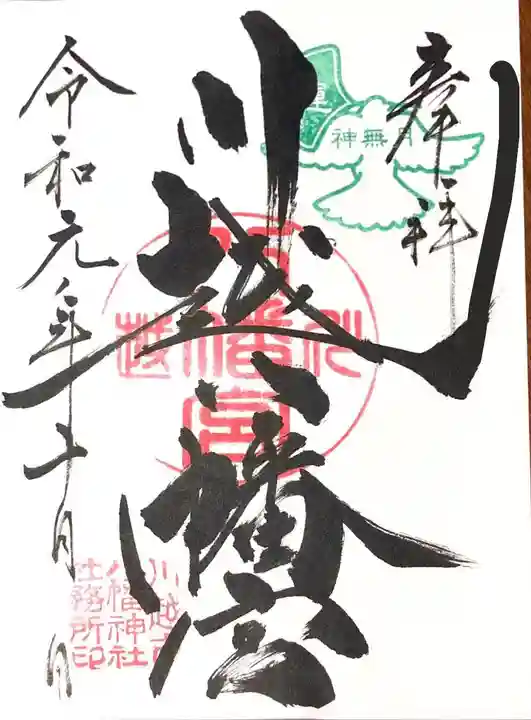 奉拝
月無神
川越八幡宮
八幡宮
川越
令和元年十月　日
川越市
八幡神社
社務所印